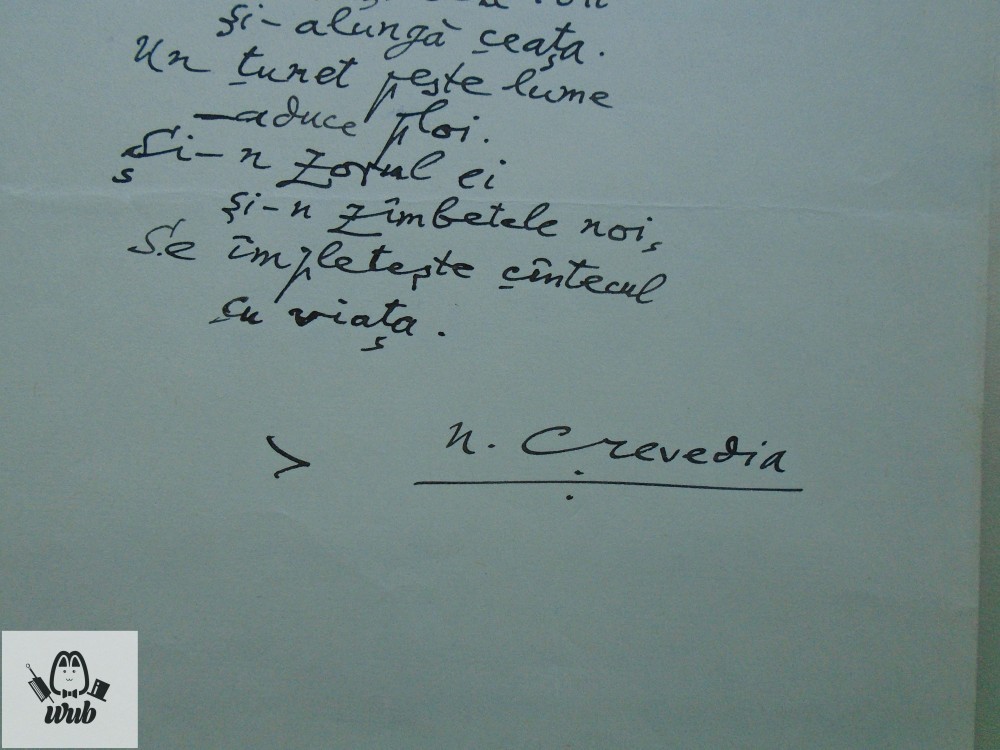 Și-alungă ceața.
Un tunet peste lume
—aduce ploi.
Și-n zorul ei
și-n zîmbetele noi,
Se împletește cîntecul
cu viața.
>
N. Crevedia
wub